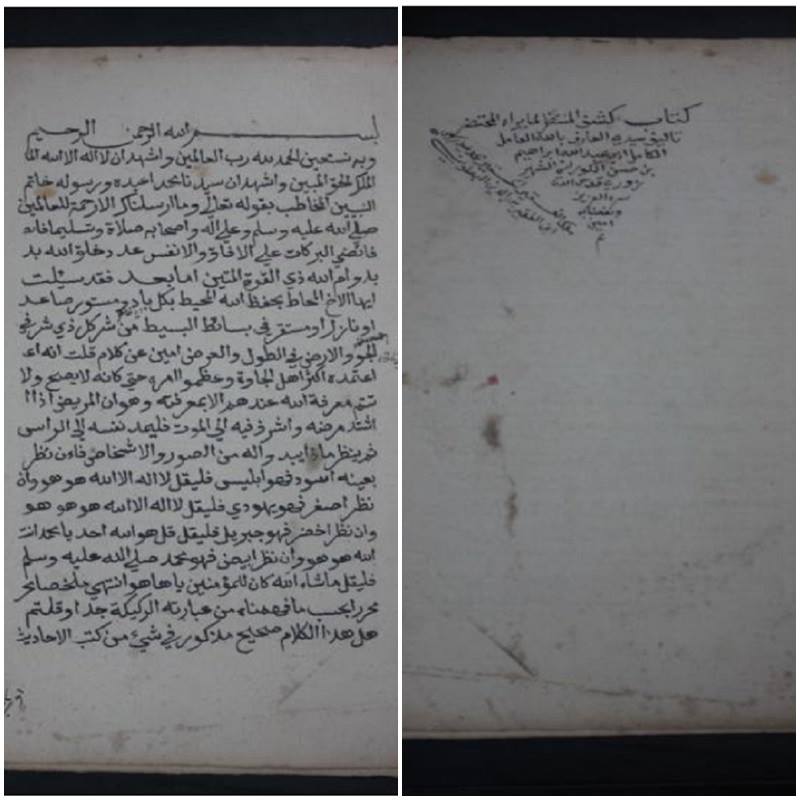 بسم الله الرحمن الرحيم
وبه نستعين الحمد لله رب العالمين واشهد ان لا اله الا الله الما
الملك الحق المبين واشهد ان سيدنا محمدا عبده ورسوله خاتم
النبيين المخاطب بقوله تعالى وما ارسلناك الا رحمة للعالمين
صلى الله عليه وسلم وعلى اله واصحابه صلاة وتسليما
فائضي البركات على الافاق والانفس عدد خلق الله بد
بدوام الله ذي القوة المتين اما بعد فقد سئلت
ايها الاخ المحاط بحفظ الله المحيط بكل باد ومستور صاعد
او نازل او مستقر في بسائط البسيط من شر كل ذي شر في
الجو والارض في الطول والعرض امين عن كلام قلت انه اع
اعتمده اكثر اهل الجاوة وعظموا امره حتى كانه لا يصح ولا
تتم معرفة الله عندهم الا بمعرفته وهو ان المريض اذا ا
اشتد مرضه واشرف فيه الى الموت فليمد نفسه الى الراس
ثم ينظر ماذا يبد واله من الصور والاشخاص فاءن نظر
بعينه اسود فهو ابليس فليقل لا اله الا الله هو هو وان
نظر اصفر فهو يهودي فليقل لا اله الا الله هو هو هو
وان نظر اخضر فهو جبريل فليقل قل هو الله احد يا محمد انت
الله هو هو وان نظر ابيض فهو محمد صلى الله عليه وسلم
فليقل ما شاء الله كان للمؤمنين يا ها هو انتهى ملخصا محر
محررا بحسب ما فهمناه من عبارته الركيكة جدا وقلتم
هل هذا الكلام صحيح مذكور في شيء من كتب الاحاديث
كتاب كشف المنتظر لما يراه المحتضر
تاليف سيدي العارف بالله العامل
الكامل ابي عبد الله ابراهيم
بن حسن الكوراني الشهير
قدس الله
سره العزيز
ونفعنا به
امين
م